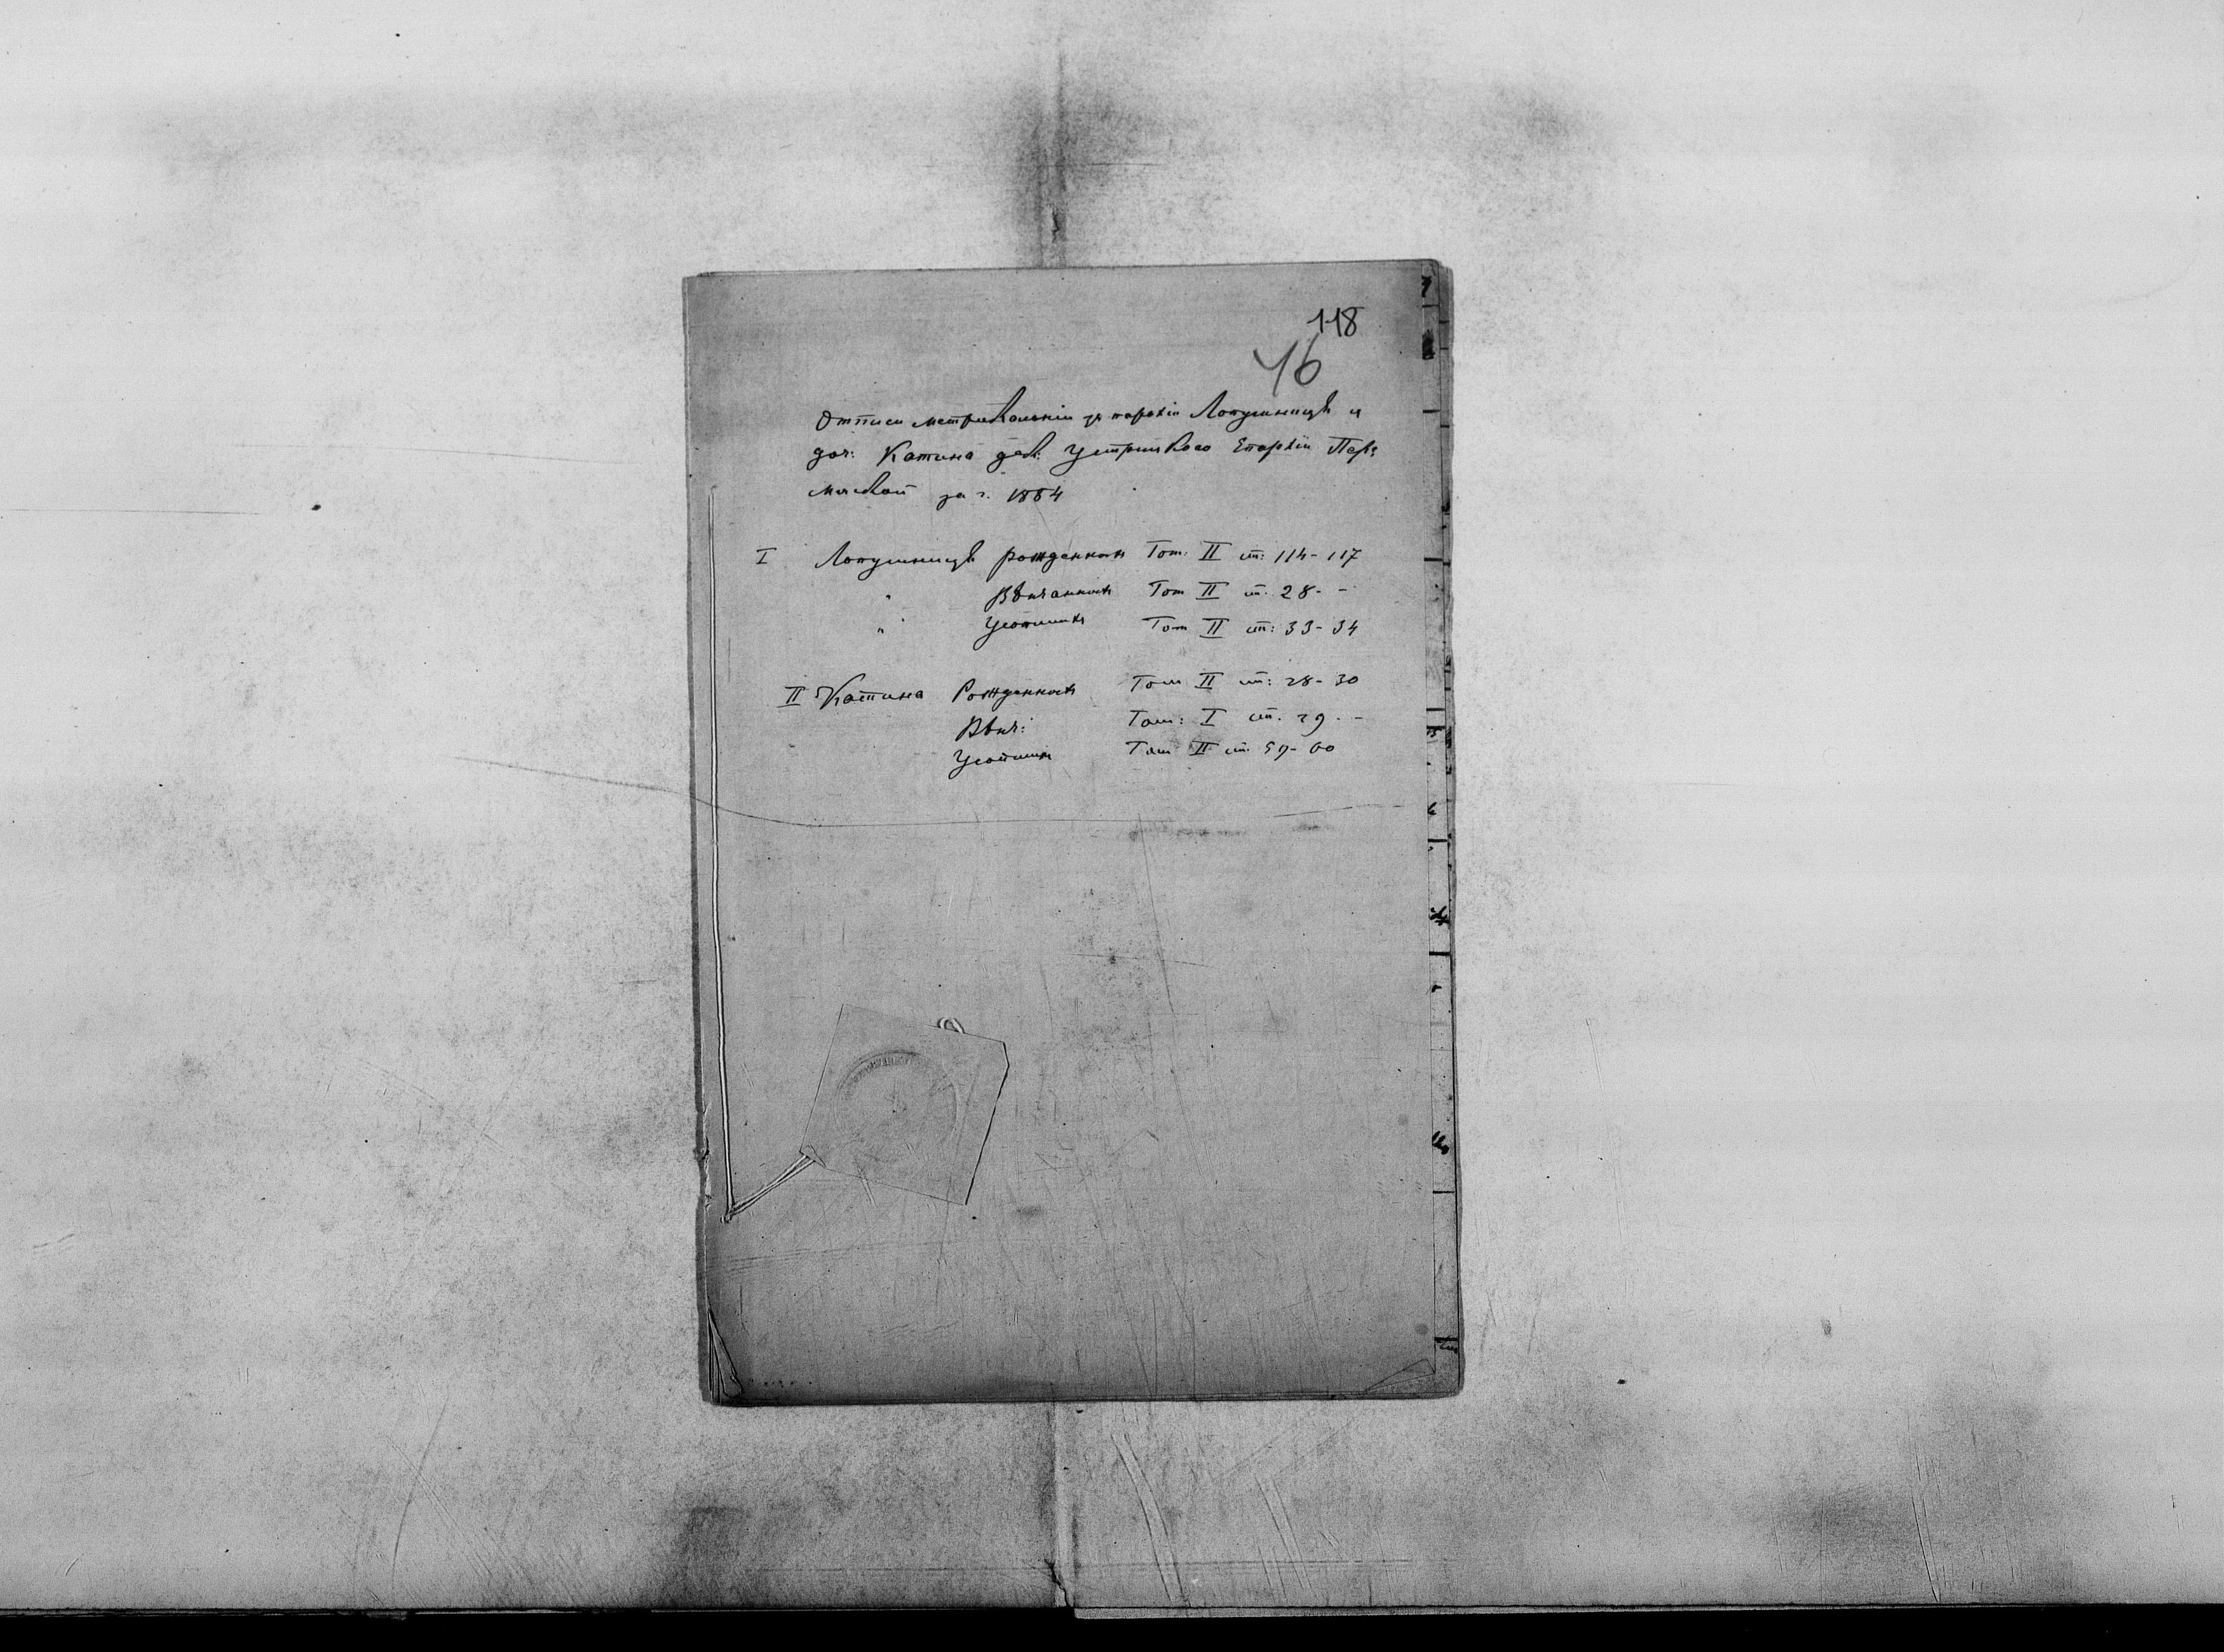 118
46
Отписи метрикальнiи зъ парохiи Лопушницѣ и
доч: Катина дек: Устрицкого Епархiи Пере
мыской за г. 1884
I Лопушницѣ рожденныхъ Том: II ст: 114-117
" Вѣнчанныхъ Том II ст. 28--
" Усопшихъ Том II ст: 33-34
II Катина Рожденныхъ Том II ст: 28-30
Вѣнч: Том: I ст. 29--
Усопших Том II ст. 59-60